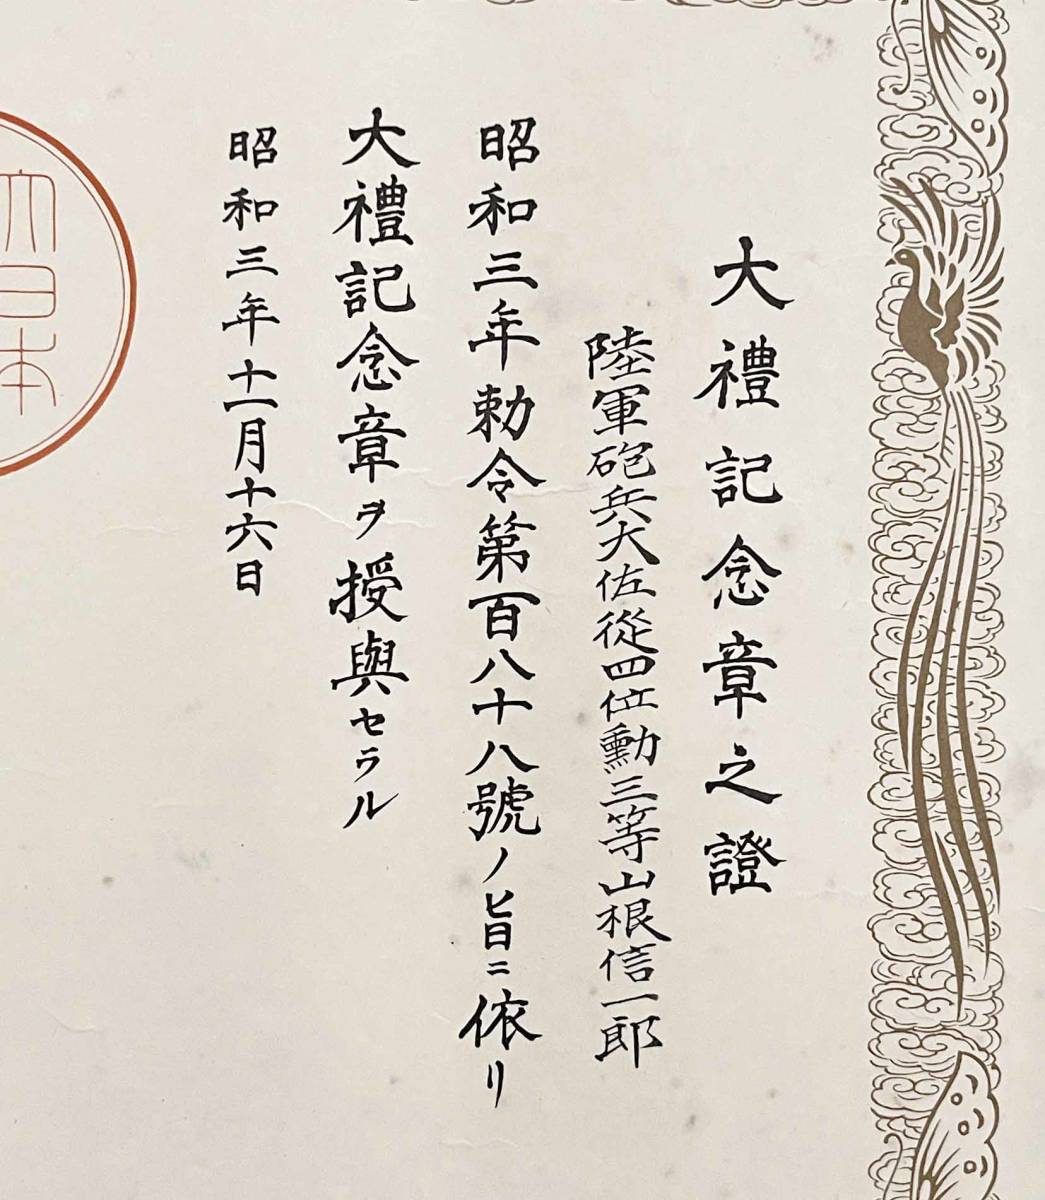 大禮記念章之證
陸軍砲兵大佐從四位勳三等山根信一郎
昭和三年勅令第百八十八號ノ旨ニ依リ
大禮記念章ヲ授與セラル
昭和三年十一月十六日
大日本